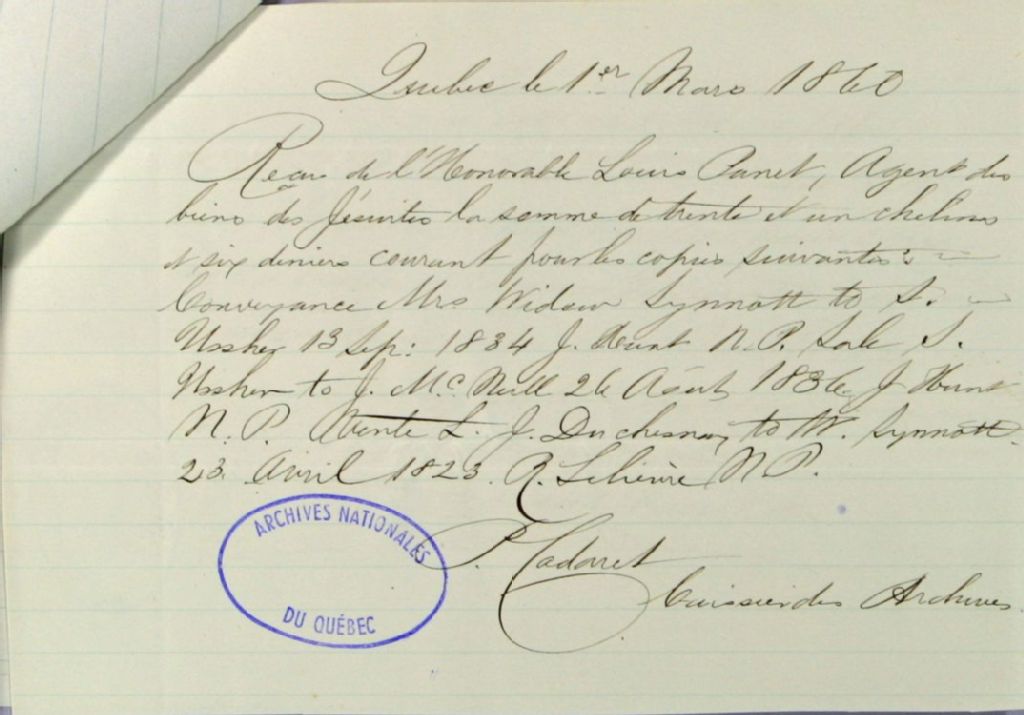 Quebec le 1er Mars 1860
Reçu de l'Honorable Louis Panet, Agent des
biens des Jésuites la somme de trente et un chelins
et six deniers courant pour les copies suivantes :
Conveyance Mrs Widow Synnott to S.
Ussher 13 Sep: 1834 J. Hunt N.P. Sale S.
Ussher to J. Mc Neill 26 Août 1836 J Hunt
N.P. Vente L. J. Duchesnay to W. Synnott
23 Avril 1823. R. Lelièvre N.P.
P.
Caissier des Archives
ARCHIVES NATIONALES
DU QUÉBEC